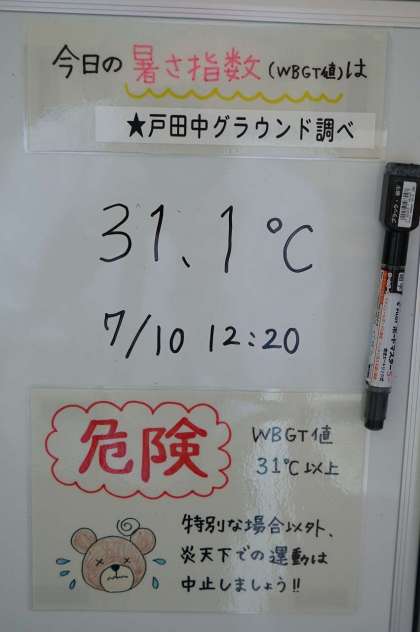 今日の暑さ指数(WBGT値)は
★戸田中グラウンド調べ
31.1℃
7/10 12:20
危険
WBGT値
31℃以上
特別な場合以外、
炎天下での運動は
中止しましょう!!